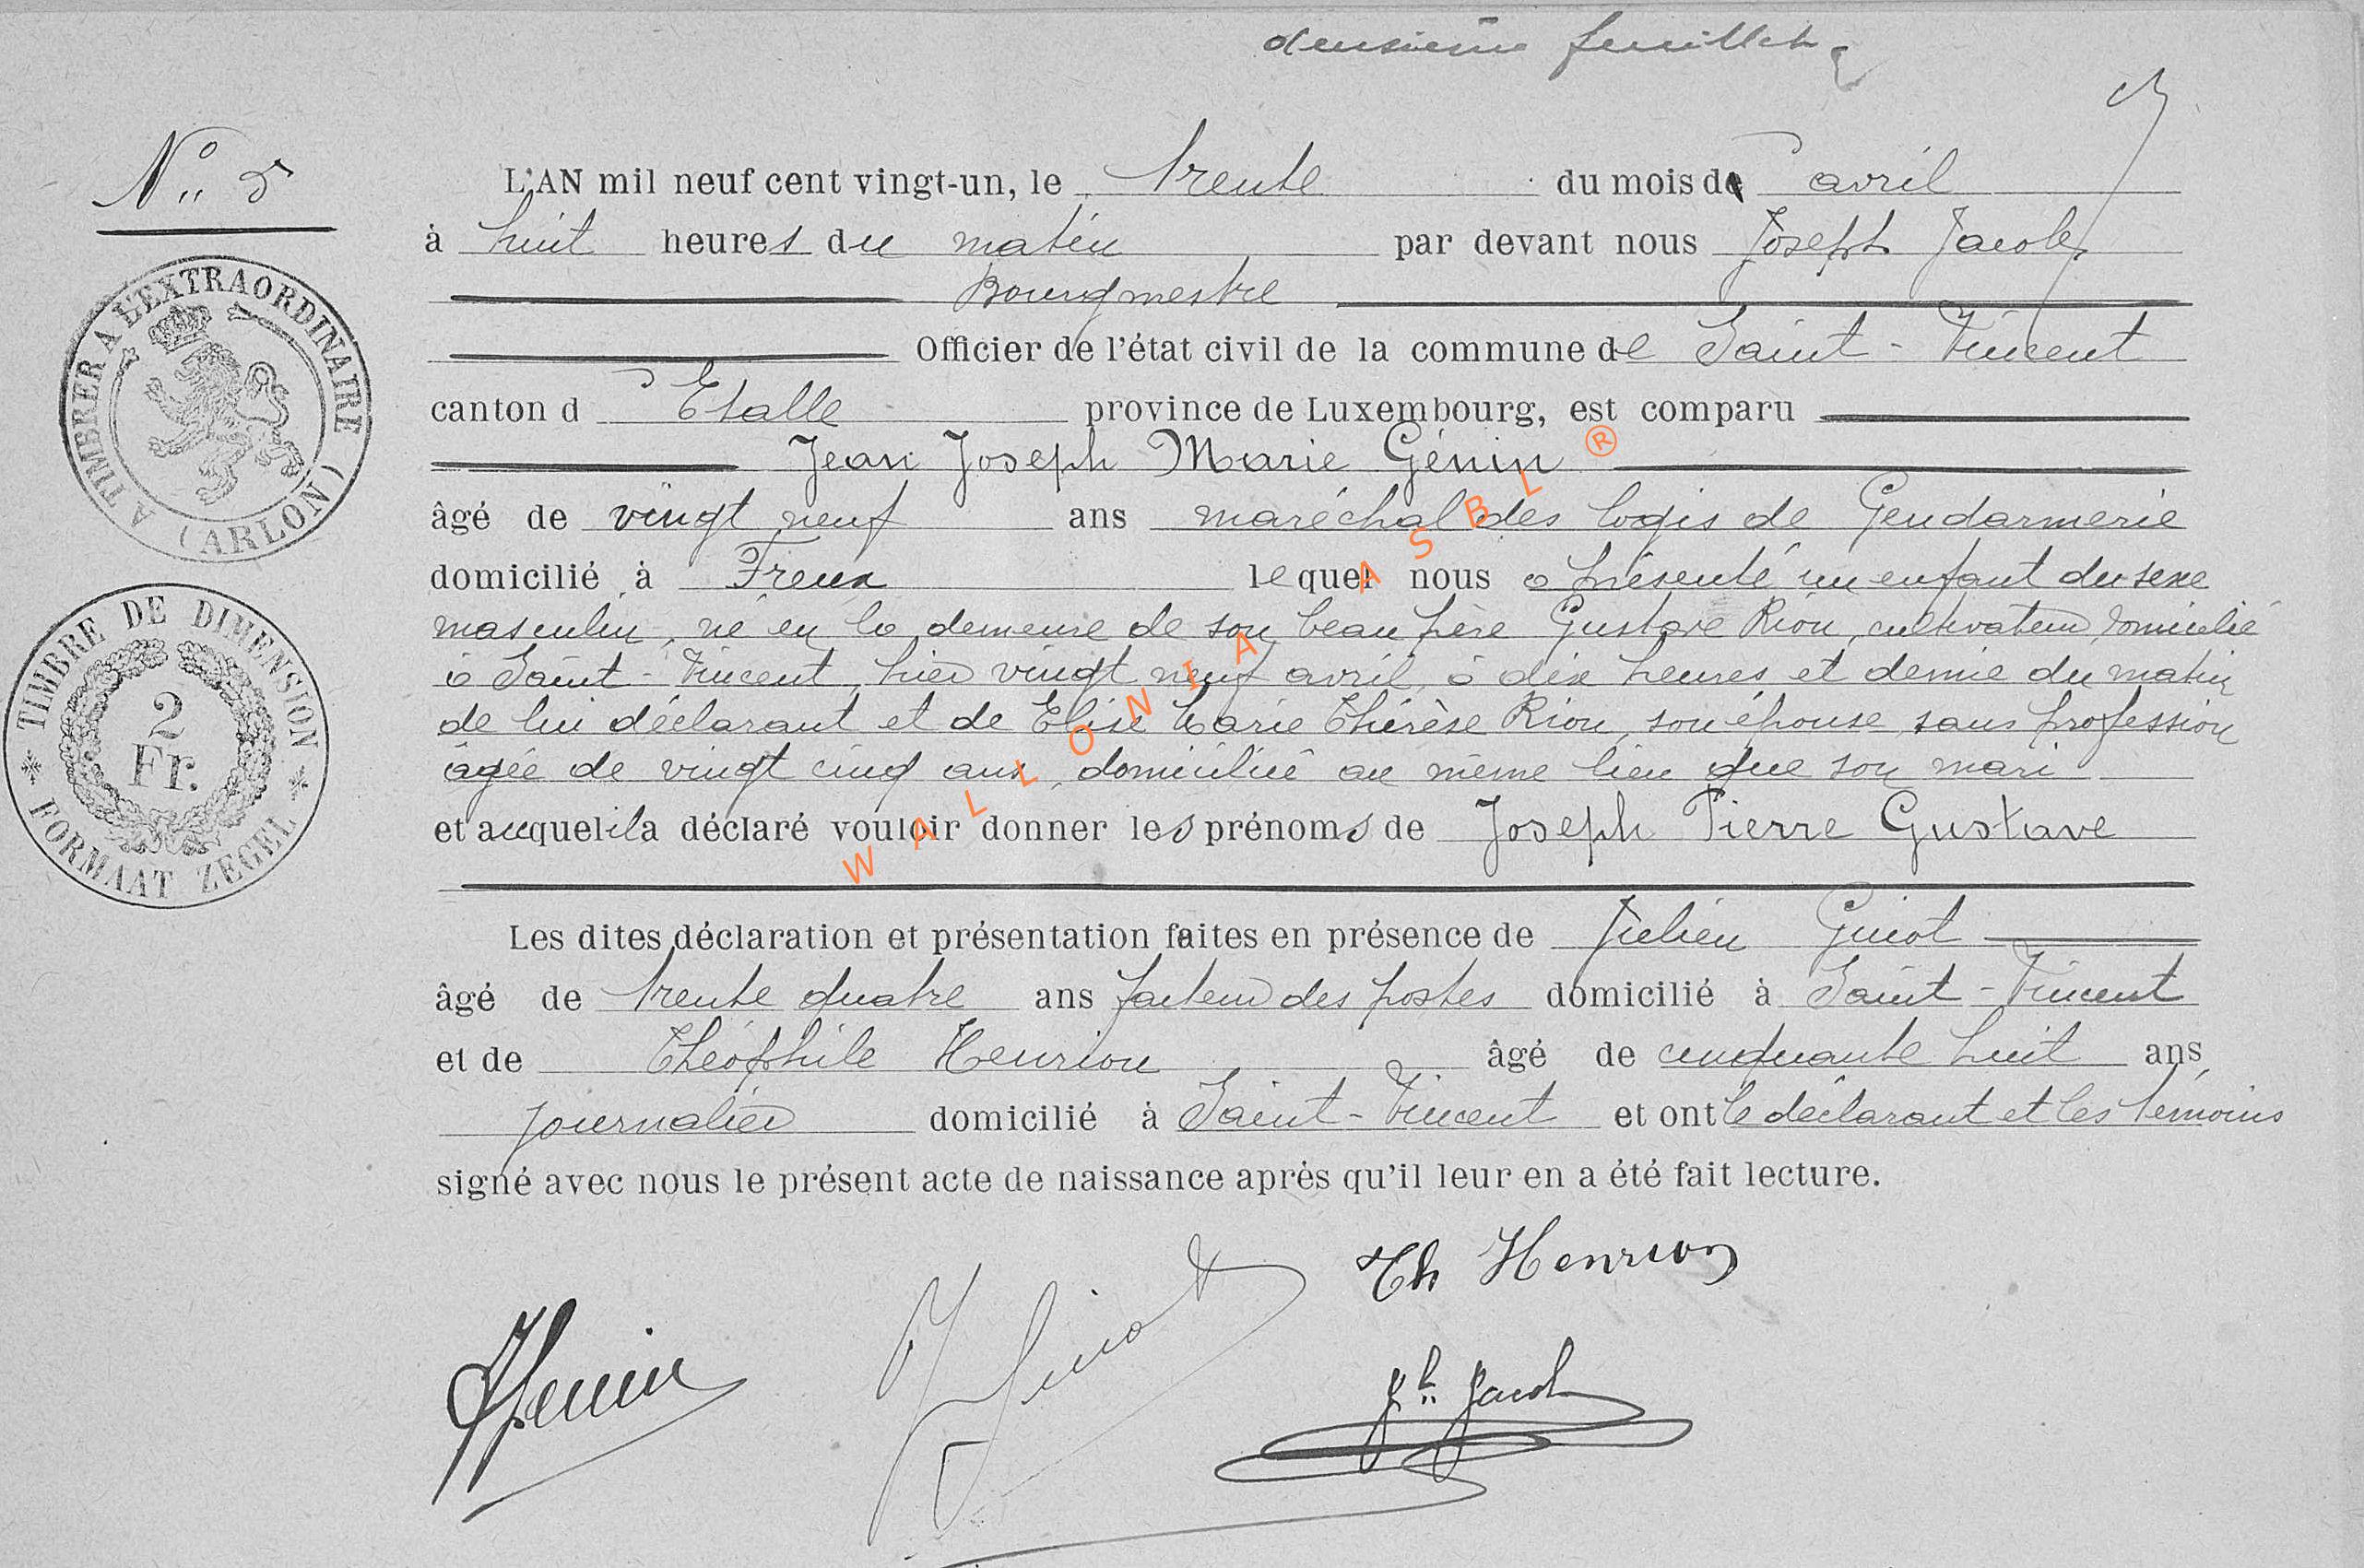 deuxième feuillet
N° 5
L'AN mil neuf cent vingt-un, le trente du mois d' avril
à huit heures du matin par devant nous Joseph Jacob,
Bourgmestre
Officier de l'état civil de la commune de Saint-Vincent
canton d' Etalle province de Luxembourg, est comparu
Jean Joseph Marie Génin
âgé de vingt neuf ans maréchal des logis de Gendarmerie
domicilié à Freux lequel nous a présenté un enfant du sexe
masculin, né en la demeure de son beau père Gustave Riou, cultivateur, domicilié
à Saint-Vincent, hier vingt neuf avril, à dix heures et demie du matin
de lui déclarant et de Elise Marie Thérèse Riou, son épouse, sans profession
âgée de vingt cinq ans, domiciliée au même lieu que son mari
et auquel il a déclaré vouloir donner les prénoms de Joseph Pierre Gustave
Les dites déclaration et présentation faites en présence de Julien Guiot
âgé de trente quatre ans facteur des postes domicilié à Saint-Vincent
et de Théophile Henrion âgé de cinquante huit ans
journalier domicilié à Saint-Vincent et ont le déclarant et les témoins
signé avec nous le présent acte de naissance après qu'il leur en a été fait lecture.
Th Henrion
JGenin
JGuiot
Jh Jacob
A TIMBRER A L'EXTRAORDINAIRE
(ARLON)
TIMBRE DE DIMENSION
2
Fr.
FORMAAT ZEGEL
WALLONIA ASBL ®